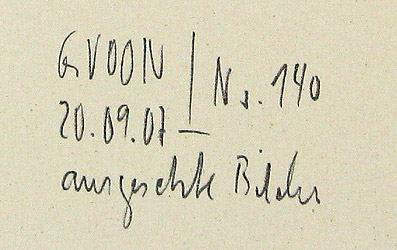 GVOON | No. 140
20.09.07
ausgesetzte Bilder